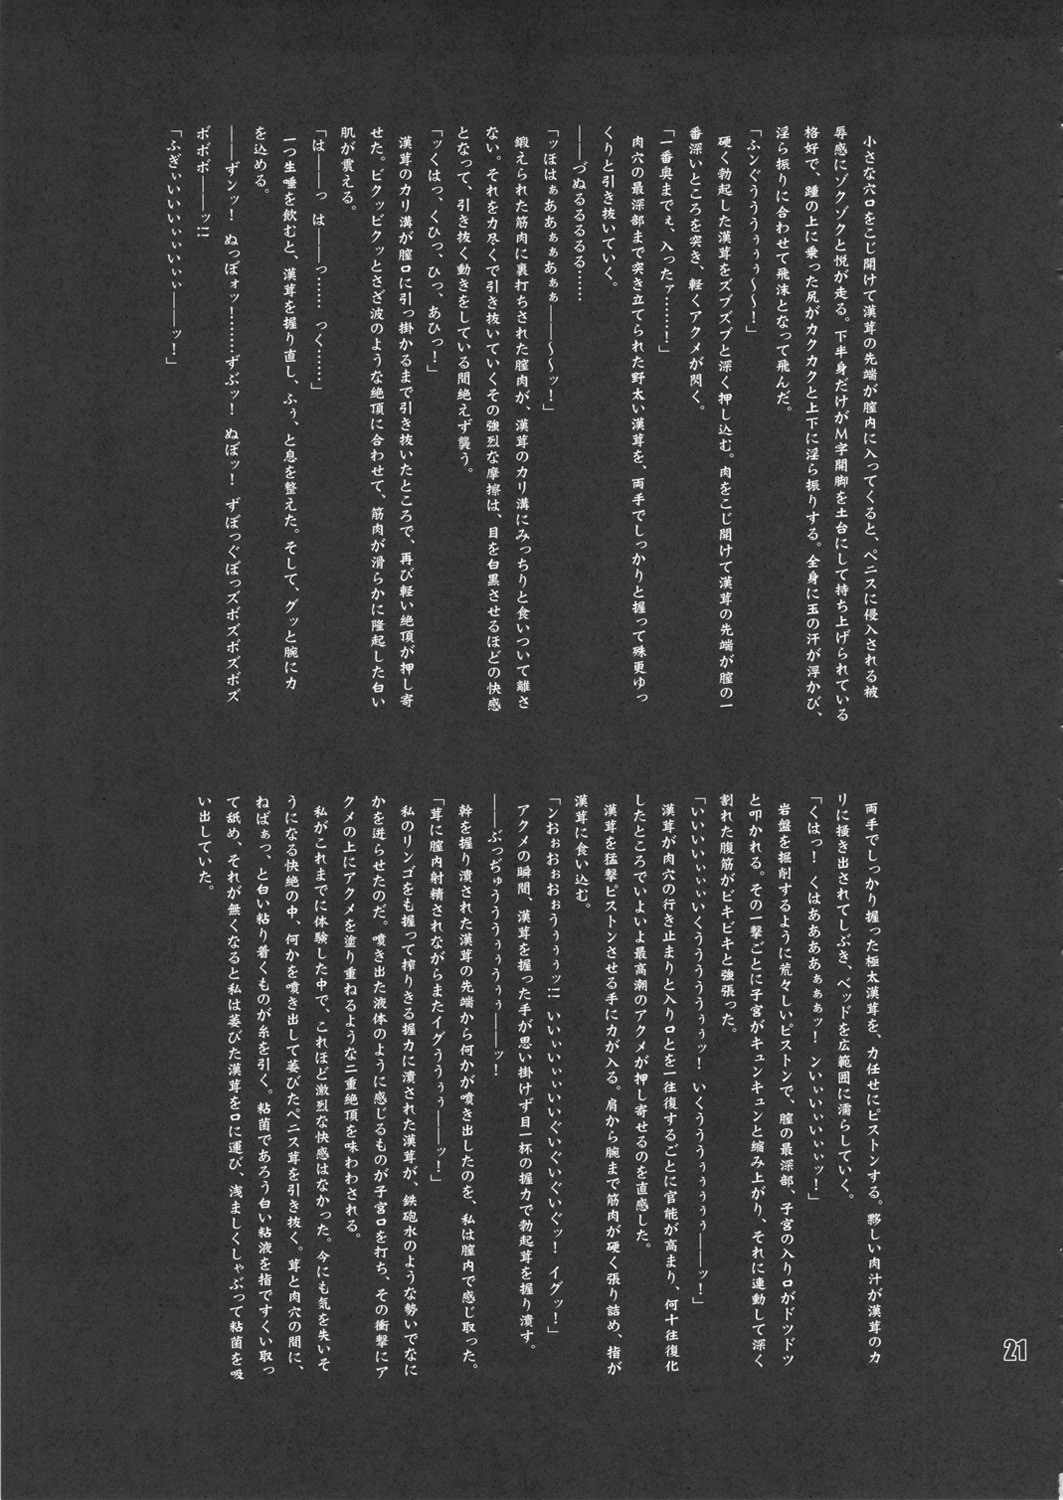 小さな穴口をこじ開けて漢茸の先端が膣内に入ってくると、ペニスに侵入される被
辱感にゾクゾクと悦が走る。下半身だけがM字開脚を土台にして持ち上げられている
格好で、踵の上に乗った尻がカクカクと上下に淫ら振りする。全身に玉の汗が浮かび、
淫ら振りに合わせて飛沫となって飛んだ。
「ふンぐうううぅぅぅ～～！」
硬く勃起した漢茸をズブズブと深く押し込む。肉をこじ開けて漢茸の先端が膣の一
番深いところを突き、軽くアクメが閃く。
「一番奥までぇ、入ったァ……！」
肉穴の最深部まで突き立てられた野太い漢茸を、両手でしっかりと握って殊更ゆっ
くりと引き抜いていく。
――づぬるるるるる……
「ッほはぁああぁぁあぁぁ――～～ッ！」
鍛えられた筋肉に裏打ちされた膣肉が、漢茸のカリ溝にみっちりと食いついて離さ
ない。それを力尽くで引き抜いていくその強烈な摩擦は、目を白黒させるほどの快感
となって、引き抜く動きをしている間絶えず襲う。
「ッくはっ、くひっ、ひっ、あひっ！」
漢茸のカリ溝が膣口に引っ掛かるまで引き抜いたところで、再び軽い絶頂が押し寄
せた。ビクッビクッとさざ波のような絶頂に合わせて、筋肉が滑らかに隆起した白い
肌が震える。
「は――っ　は――っ……　っく……」
一つ生唾を飲むと、漢茸を握り直し、ふぅ、と息を整えた。そして、グッと腕に力
を込める。
――ずンッ！　ぬっぽォッ！……ずぶッ！　ぬぼッ！　ずぼっぐぼっズボズボズボズ
ボボボ――ッ!!
「ふぎぃいいいぃぃいぃぃ――ッ！」
両手でしっかり握った極太漢茸を、力任せにピストンする。夥しい肉汁が漢茸のカ
リに掻き出されてしぶき、ベッドを広範囲に濡らしていく。
「くはっ！　くはああああぁぁぁッ！　ンいぃいぃいぃぃッ！」
岩盤を掘削するように荒々しいピストンで、膣の最深部、子宮の入り口がドツドツ
と叩かれる。その一撃ごとに子宮がキュンキュンと縮み上がり、それに連動して深く
割れた腹筋がビキビキと強張った。
「いいいいぃぃぃいくうううううぅぅッ！　いくううぅぅぅぅぅ――ッ！」
漢茸が肉穴の行き止まりと入り口とを一往復するごとに官能が高まり、何十往復化
したところでいよいよ最高潮のアクメが押し寄せるのを直感した。
漢茸を猛撃ピストンさせる手に力が入る。肩から腕まで筋肉が硬く張り詰め、指が
漢茸に食い込む。
「ンおぉおぉおぉぅぅぅぅッ!!　いいぃいぃぃいいぐいぐいぐッ！　イグッ！」
アクメの瞬間、漢茸を握った手が思い掛けず目一杯の握力で勃起茸を握り潰す。
――ぶっぢゅうううぅぅうぅぅ――ッ！
幹を握り潰された漢茸の先端から何かが噴き出したのを、私は膣内で感じ取った。
「茸に膣内射精されながらまたイグうううぅぅ――ッ！」
私のリンゴをも握って搾りきる握力に潰された漢茸が、鉄砲水のような勢いでなに
かを迸らせたのだ。噴き出た液体のように感じるものが子宮口を打ち、その衝撃にア
クメの上にアクメを塗り重ねるような二重絶頂を味わわされる。
私がこれまでに体験した中で、これほど激烈な快感はなかった。今にも気を失いそ
うになる快絶の中、何かを噴き出して萎びたペニス茸を引き抜く。茸と肉穴の間に、
ねばぁっ、と白い粘り着くものが糸を引く。粘菌であろう白い粘液を指ですくい取っ
て舐め、それが無くなると私は萎びた漢茸を口に運び、浅ましくしゃぶって粘菌を吸
い出していた。
21